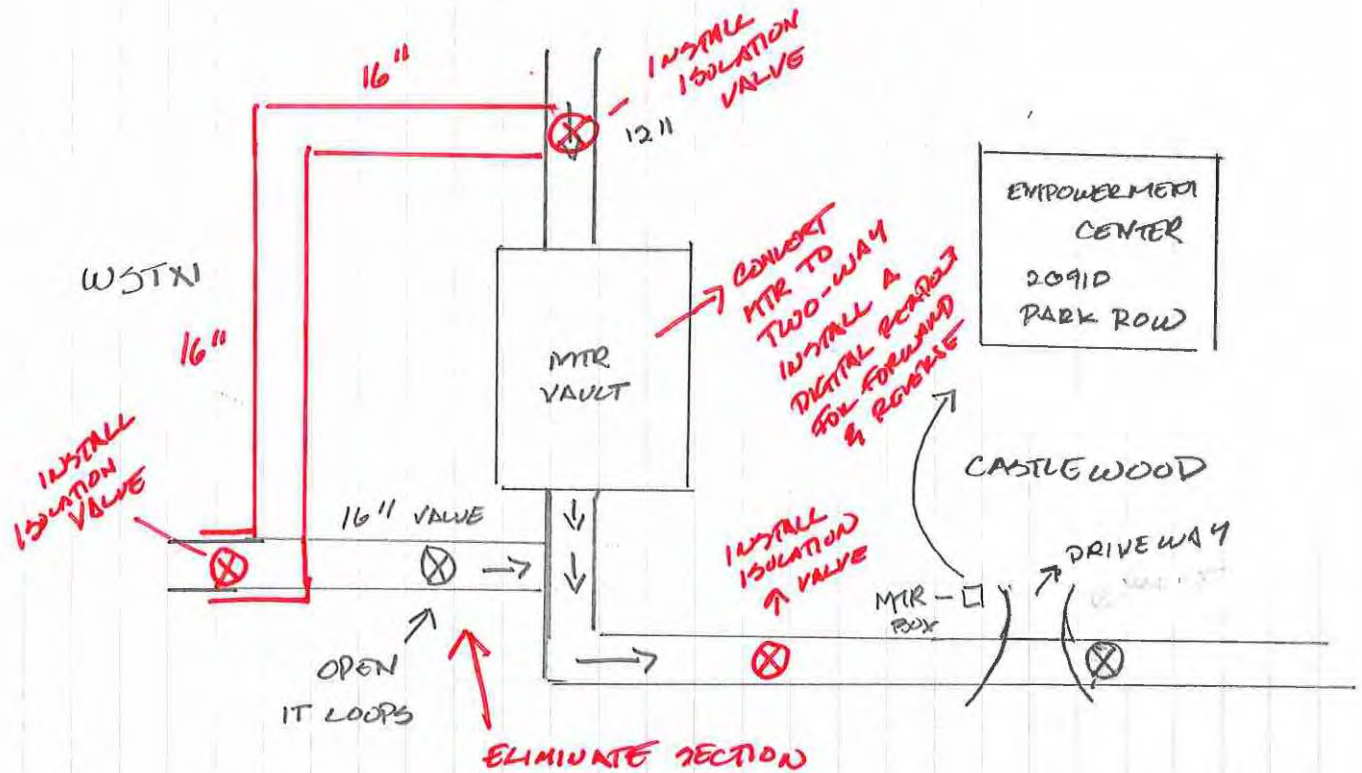 16"
INSTALL
ISOLATION
VALVE
12"
EMPOWERMENT
CENTER
20910
PARK ROW
WSTXI
16"
CONVERT
MTR TO
TWO-WAY
INSTALL A
DIGITAL READOUT
FOR FORWARD
& REVERSE
MTR
VAULT
CASTLEWOOD
INSTALL
ISOLATION
VALVE
16" VALVE
INSTALL
ISOLATION
VALVE
DRIVEWAY
MTR
BOX
OPEN
IT LOOPS
ELIMINATE SECTION